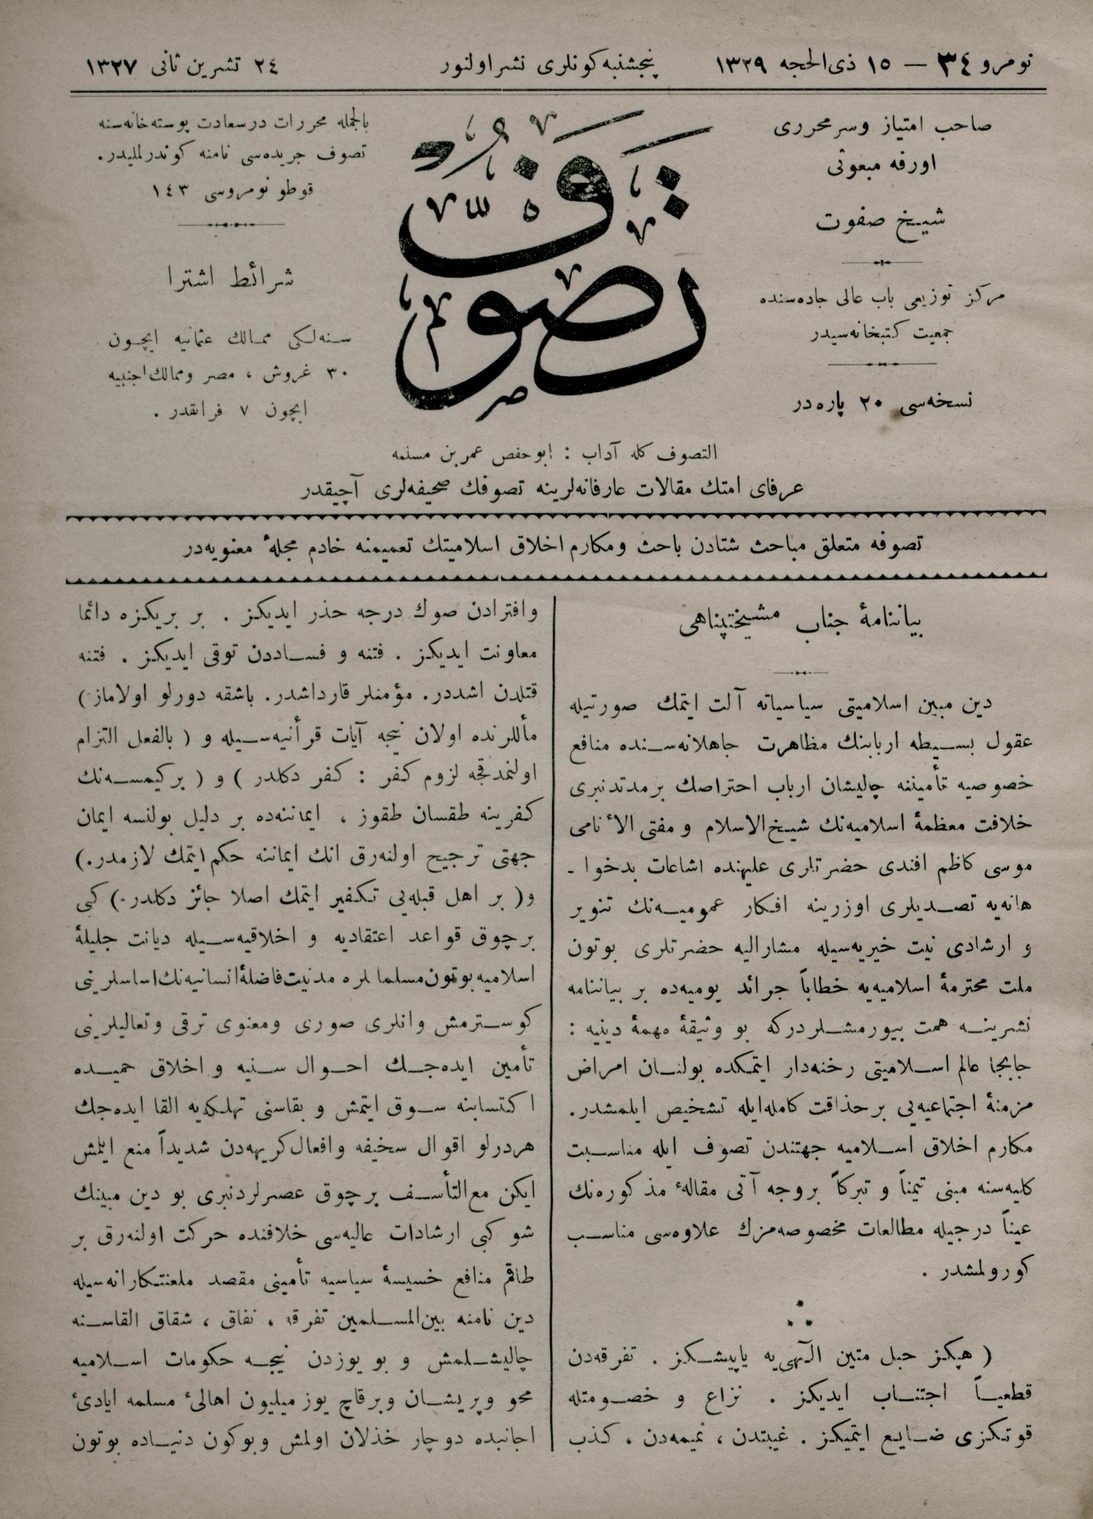 نومرو ٣٤ — ١٥ ذی‌الحجه ١٣٢٩
پنجشنبه كونلری نشر اولنور
٢٤ تشرین ثانی ١٣٢٧
صاحب امتیاز وسرمحرری
اورفه مبعوثی
شیخ صفوت
مركز توزیعی باب عالی جاده‌سنده
جمعیت كتبخانه‌سیدر
نسخه‌سی ٢٠ پاره‌در
تصوف
بالجمله محررات درسعادت پوسته‌خانه‌سنه
تصوف جریده‌سی نامنه كوندرلملیدر.
قوطو نومروسی ١٤٣
شرائط اشترا
سنه‌لكی ممالك عثمانیه ایچون
٣٠ غروش ، مصر وممالك اجنبیه
ایچون ٧ فرانقدر .
التصوف كله آداب : ابوحفص عمر بن مسلمه
عرفای امتك مقالات عارفانه‌لرینه تصوفك صحیفه‌لری آچیقدر
تصوفه متعلق مباحث شتادن باحث ومكارم اخلاق اسلامیتك تعمیمنه خادم مجلهٔ معنویه‌در
بیاننامهٔ جناب مشیختپناهی
دین مبین اسلامیتی سیاسیاته آلت ایتمك صورتیله
عقول بسیطه اربابنك مظاهرت جاهلانه‌سنده منافع
خصوصیه تأمیننه چالیشان ارباب احتراصك برمدتدنبری
خلافت معظمهٔ اسلامیه‌نك شیخ‌الاسلام و مفتی الأنامی
موسی كاظم افندی حضرتلری علیهنده اشاعات بدخوا ـ
هانه‌یه تصدیلری اوزرینه افكار عمومیه‌نك تنویر
و ارشادی نیت خیریه‌سیله مشارالیه حضرتلری بوتون
ملت محترمهٔ اسلامیه‌یه خطاباً جرائد یومیه‌ده بر بیاننامه
نشرینه همت بیورمشلردركه بو وثیقهٔ مهمهٔ دینیه :
جابجا عالم اسلامیتی رخنه‌دار ایتمكده بولنان امراض
مزمنهٔ اجتماعیه‌یی بر حذاقت كامله‌ایله تشخیص ایلمشدر.
مكارم اخلاق اسلامیه جهتندن تصوف ایله مناسبت
كلیه‌سنه مبنی تیمناً و تبركاً بروجه آتی مقالهٔ مذكوره‌نك
عیناً درجیله مطالعات مخصوصه‌مزك علاوه‌سی مناسب
كورولمشدر .
( هپكز حبل متین الٓهی‌یه یاپیشكز . تفرقه‌دن
قطعیاً اجتناب ایدیكز . نزاع و خصومتله
قوتكزی ضایع ایتمیكز . غیبتدن ، نمیمه‌دن ، كذب
وافترادن صوك درجه حذر ایدیكز . بر بریكزه دائما
معاونت ایدیكز . فتنه و فساددن توقی ایدیكز . فتنه
قتلدن اشددر. مؤمنلر قارداشدر. باشقه دورلو اولاماز )
مأللرنده اولان نیجه آیات قرأنیه‌سیله و ( بالفعل التزام
اولنمدقجه لزوم كفر : كفر دكلدر ) و ( بركیمسه‌نك
كفرینه طقسان طقوز ، ایماننه‌ده بر دلیل بولنسه ایمان
جهتی ترجیح اولنه‌رق انك ایماننه حكم ایتمك لازمدر.)
و( بر اهل قبله‌یی تكفیر ایتمك اصلا جائز دكلدر.) كبی
برچوق قواعد اعتقادیه و اخلاقیه‌سیله دیانت جلیلهٔ
اسلامیه بوتون مسلمانلره مدنیت فاضلهٔ انسانیه‌نك اساسلرینی
كوسترمش وانلری صوری ومعنوی ترقی وتعالیلرینی
تأمین ایده‌جك احوال سنیه و اخلاق حمیده
اكتسابنه سوق ایتمش و بقاسنی تهلكه‌یه القا ایده‌جك
هردرلو اقوال سخیفه وافعال كریهه‌دن شدیداً منع ایلمش
ایكن مع‌التأسف برچوق عصرلردنبری بو دین مبینك
شو كبی ارشادات عالیه‌سی خلافنده حركت اولنه‌رق بر
طاقم منافع خسیسهٔ سیاسیه تأمینی مقصد ملعنتكارانه‌سیله
دین نامنه بین‌المسلمین تفرقه ، نفاق ، شقاق القاسنه
چالیشلمش و بو یوزدن نیجه حكومات اسلامیه
محو وپریشان وبرقاچ یوز میلیون اهالیٔ مسلمه ایادیٔ
اجانبده دوچار خذلان اولمش وبوكون دنیاده بوتون